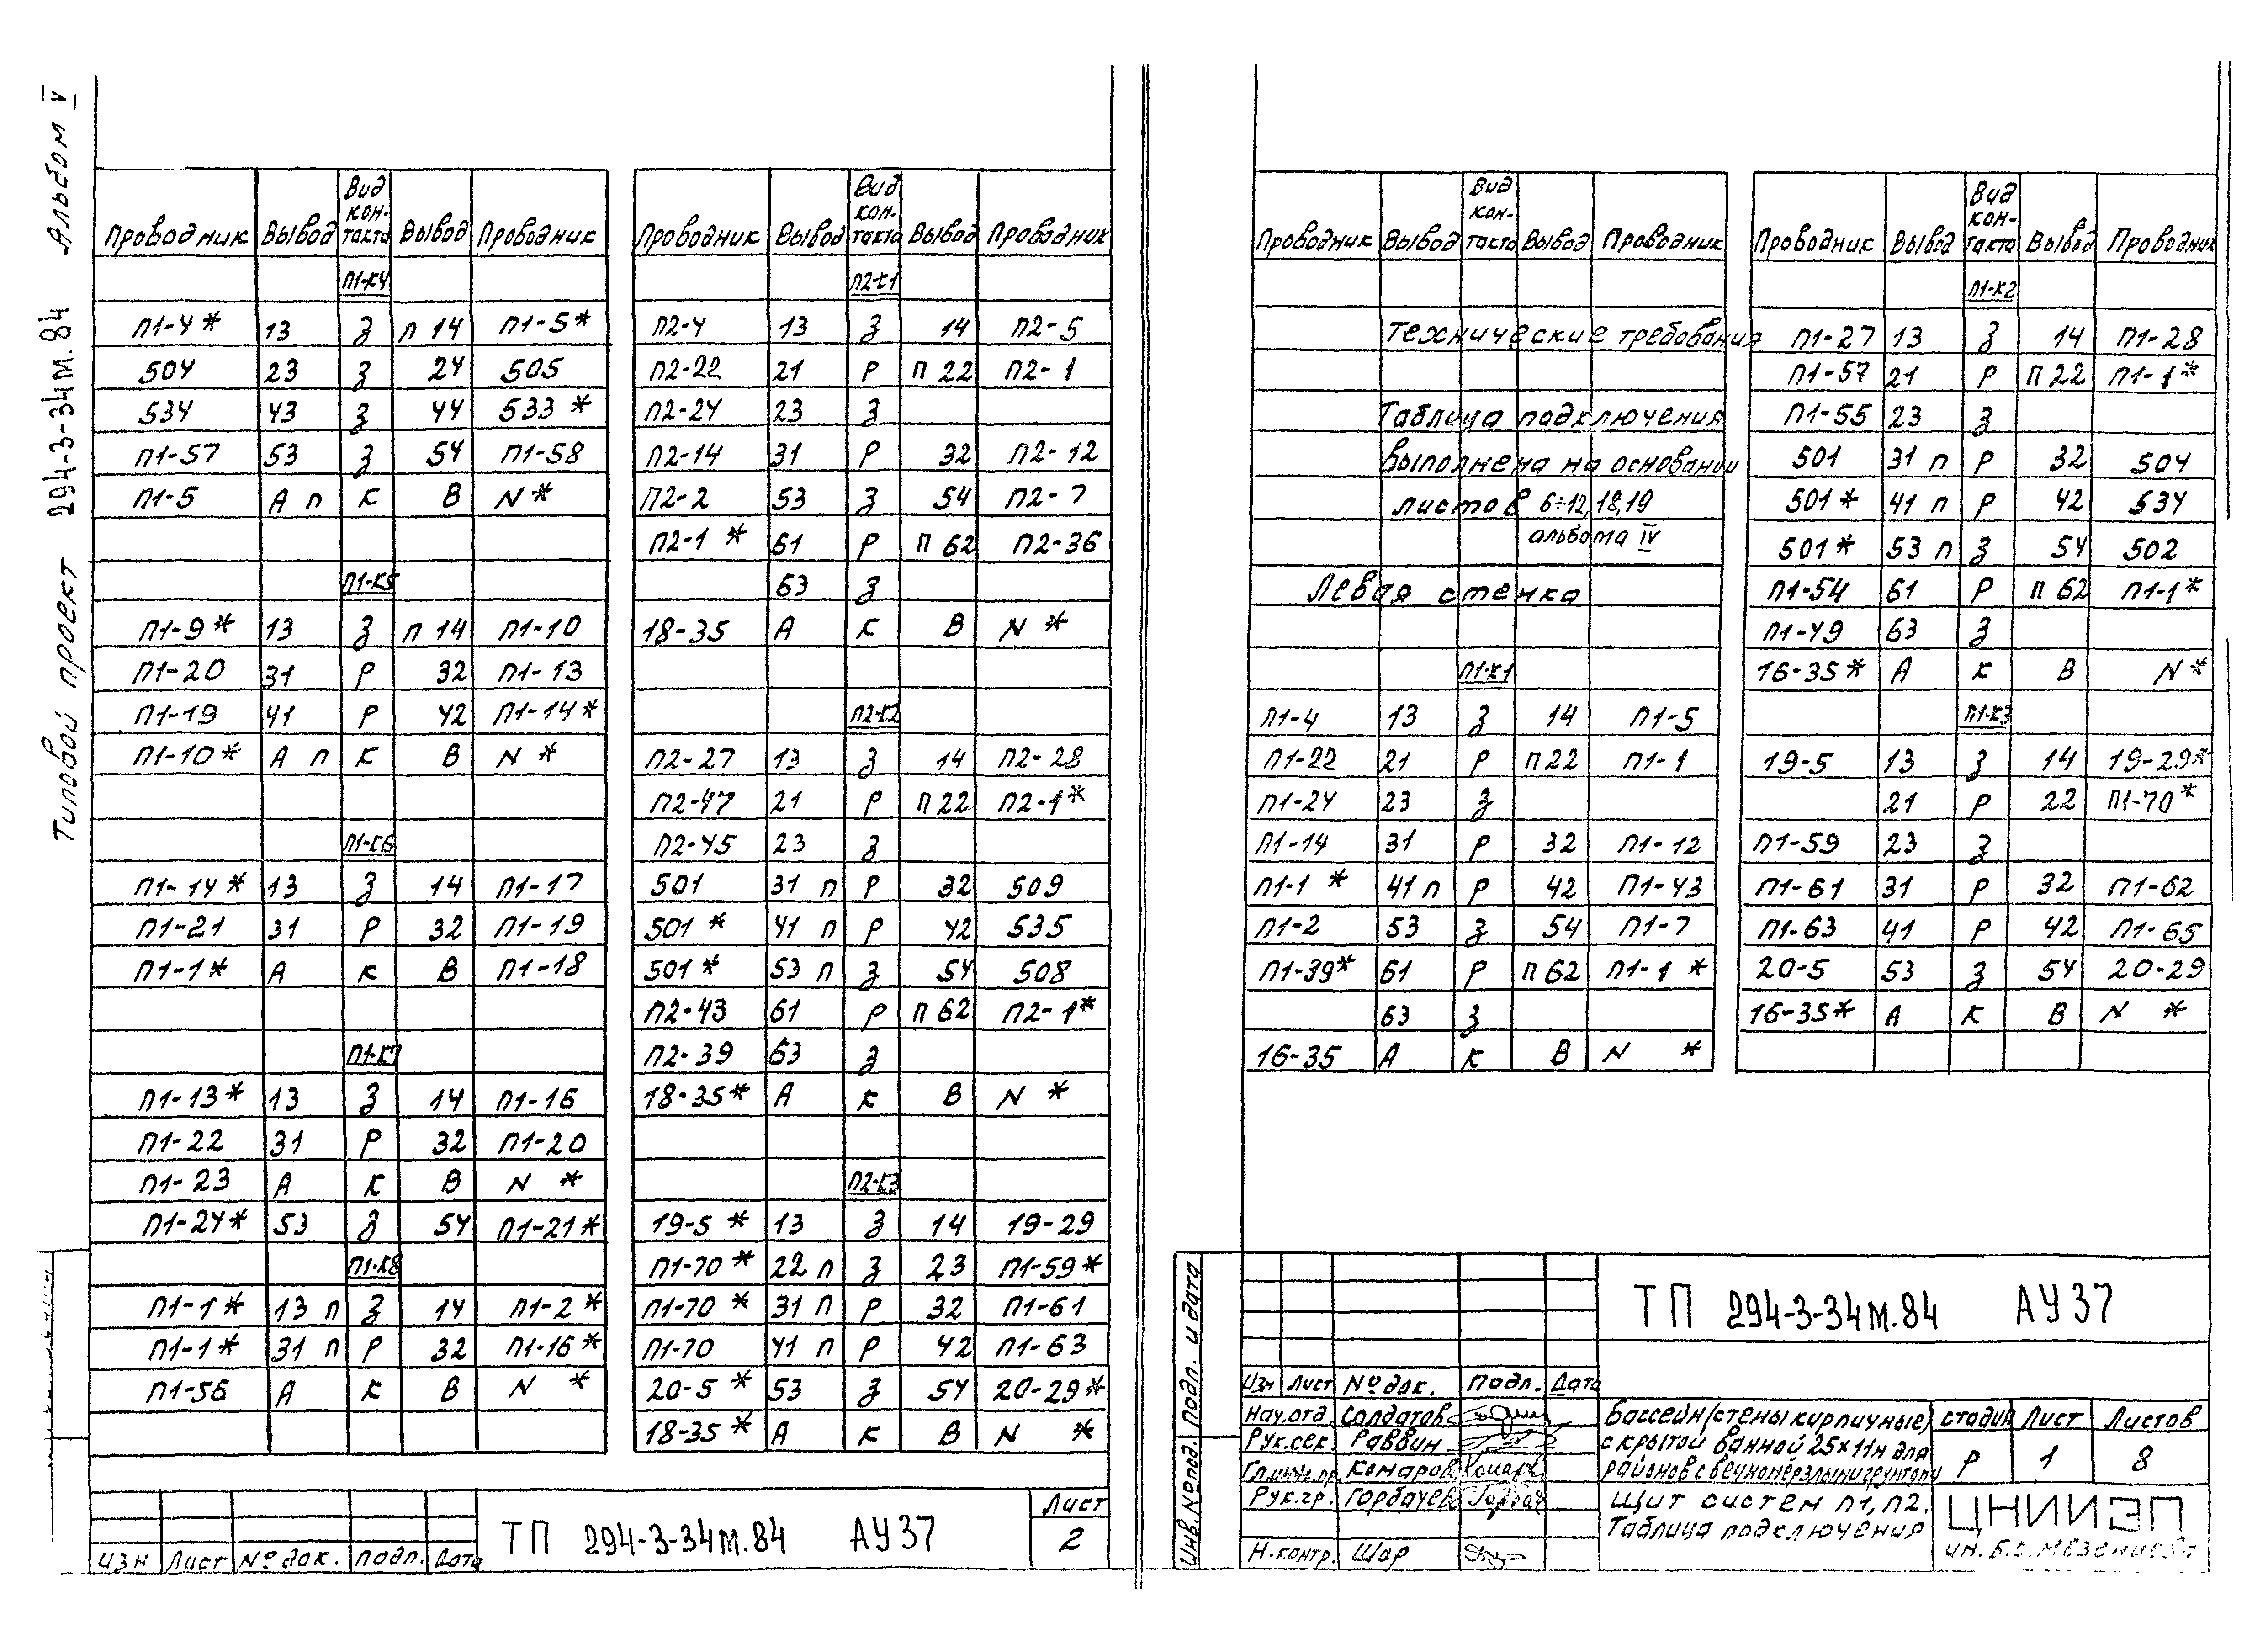 Типовой проект 294-3-34м.84 Альбом V
Проводник Вывод Вид кон-такта Вывод Проводник
П1-К4
П1-4* 13 З п 14 П1-5*
504 23 З 24 505
534 43 З 44 533*
П1-57 53 З 54 П1-58
П1-5 А п К В N*
П1-К5
П1-9* 13 З п 14 П1-10
П1-20 31 Р 32 П1-13
П1-19 41 Р 42 П1-14*
П1-10* А п К В N*
П1-К6
П1-14* 13 З 14 П1-17
П1-21 31 Р 32 П1-19
П1-1* А К В П1-18
П1-К7
П1-13* 13 З 14 П1-16
П1-22 31 Р 32 П1-20
П1-23 А К В N *
П1-24* 53 З 54 П1-21*
П1-К8
П1-1* 13 п З 14 П1-2*
П1-1* 31 п Р 32 П1-16*
П1-56 А К В N *
Проводник Вывод Вид кон-такта Вывод Проводник
П2-К1
П2-4 13 З 14 П2-5
П2-22 21 Р П 22 П2-1
П2-24 23 З
П2-14 31 Р 32 П2-12
П2-2 53 З 54 П2-7
П2-1 * 61 Р П 62 П2-36
63 З
18-35 А К В N *
П2-К2
П2-27 13 З 14 П2-28
П2-47 21 Р П 22 П2-1*
П2-45 23 З
501 31 п Р 32 509
501 * 41 п Р 42 535
501 * 53 п З 54 508
П2-43 61 Р П 62 П2-1*
П2-39 63 З
18-35* А К В N *
П2-К3
19-5 * 13 З 14 19-29
П1-70 * 22 п З 23 П1-59*
П1-70 * 31 П Р 32 П1-61
П1-70 41 п Р 42 П1-63
20-5 * 53 З 54 20-29*
18-35* А К В N *
Изм Лист № док. Подп. Дата
ТП 294-3-34м.84 АУ37
Лист
2
Проводник Вывод Вид кон-такта Вывод Проводник
Технические требования
Таблица подключения
выполнена на основании
листов 6÷12, 18, 19
альбома IV
Левая стенка
П1-К1
П1-4 13 З 14 П1-5
П1-22 21 Р П 22 П1-1
П1-24 23 З
П1-14 31 Р 32 П1-12
П1-1 * 41 п Р 42 П1-43
П1-2 53 З 54 П1-7
П1-39* 61 Р П 62 П1-1 *
63 З
16-35 А К В N *
Проводник Вывод Вид кон-такта Вывод Проводник
П1-К2
П1-27 13 З 14 П1-28
П1-57 21 Р П 22 П1-1*
П1-55 23 З
501 31 п Р 32 504
501 * 41 п Р 42 534
501 * 53 п З 54 502
П1-54 61 Р П 62 П1-1*
П1-49 63 З
16-35* А К В N*
П1-К3
19-5 13 З 14 19-29*
21 Р 22 П1-70*
П1-59 23 З
П1-61 31 Р 32 П1-62
П1-63 41 Р 42 П1-65
20-5 53 З 54 20-29
16-35* А К В N *
Инв. № подл. Подп. и дата
ТП 294-3-34м.84 АУ37
Изм Лист № док. Подп. Дата
Нач.отд. Солдатов
Рук.сек. Раввин
Гл.инж.пр. Комаров
Рук.гр. Горбачев
Н.контр. Шор
Бассейн (стены кирпичные)
с крытой ванной 25×11м для
районов с вечномерзлыми грунтами
Стадия Лист Листов
Р 1 8
Щит систем П1, П2.
Таблица подключения
ЦНИИЭП
им. Б.С. Мезенцева